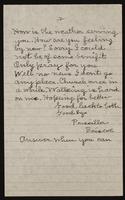 2
How is the weather serving
you. How are you feeling
by now? Sorry I could
not be of some benifit
Only pray for you
Well no news I don't go
any place. Church once in
a while. Walking is hard
on me. Hoping for better
Good luck to both
Good bye
Priscilla
Driscol
Answer when you can